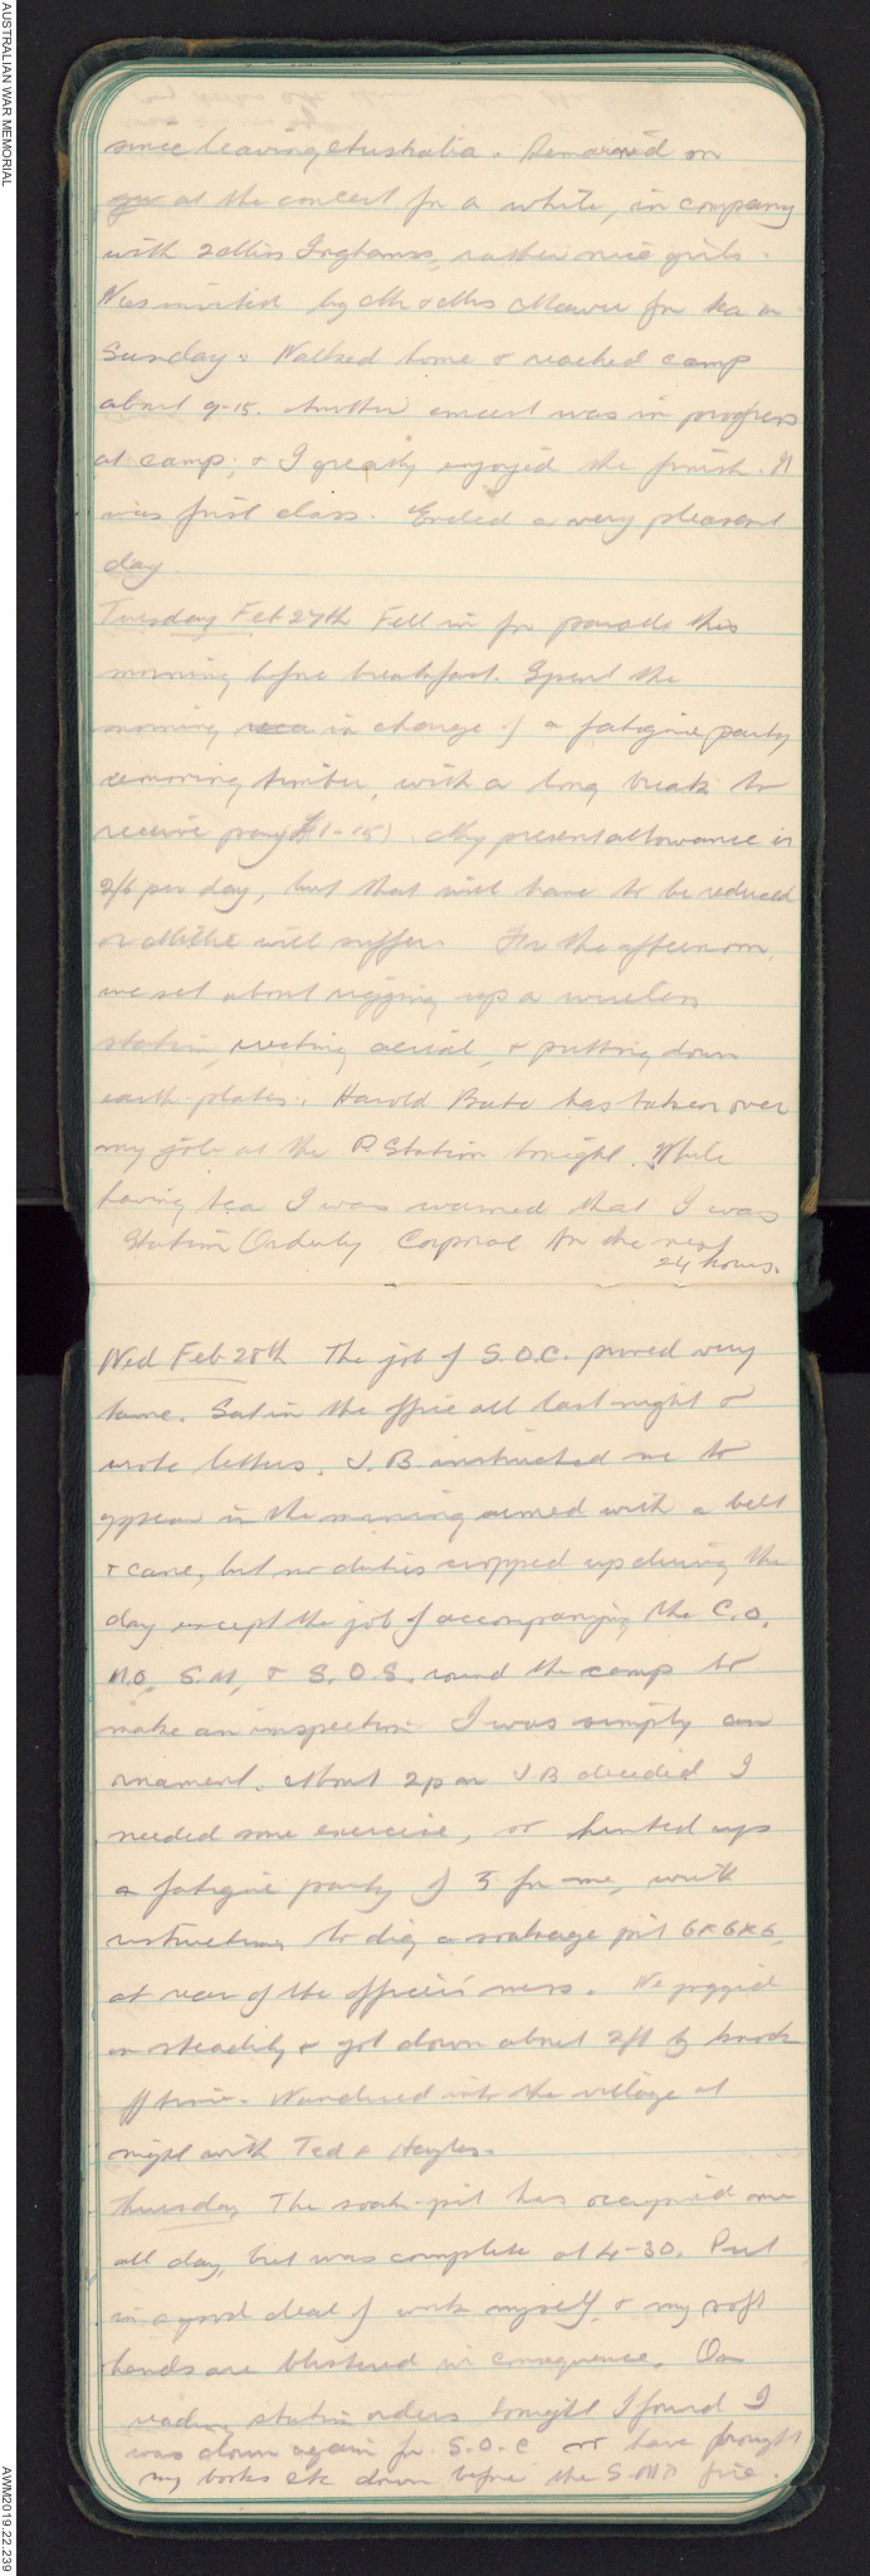 AUSTRALIAN WAR MEMORIAL
since leaving Australia. Remained on
at the concert for a while, in company
with 2 Miss Inghams, rather nice girls.
Was invited by Mr & Mrs for tea on
Sunday. Walked home & reached camp
about 9-15. Another concert was in progress
at camp, & I greatly enjoyed the finish. It
was first class. Ended a very pleasant
day.
Tuesday Feb 27th Fell in for parade this
morning before breakfast. Spent the
morning in charge of a fatigue party
removing timber, with a long break to
receive pay (£1-15). My present allowance is
2/6 per day, but that will have to be reduced
or will suffer. For the afternoon,
we set about rigging up a wireless
station, erecting aerial, & putting down
earth-plates. Harold Bate has taken over
my job at the P. Station tonight. While
having tea I was warned that I was
Station Orderly Corporal for the next
24 hours.
Wed Feb 28th The job of S.O.C. proved very
tame. Sat in the office all last night &
wrote letters. J.B instructed me to
appear in the morning armed with a belt
& cane, but no duties cropped up during the
day except the job of accompanying the C.O.
M.O, S.M, & S.O.S. round the camp to
make an inspection. I was simply an
ornament. About 2pm J B decided I
needed some exercise, so hunted up
a fatigue party of 5 for me, with
instructions to dig a soakage pit 6x6x6,
at rear of the officers' mess. We pegged
on steadily & got down about 2ft by knock
off time. Wandered into the village at
night with Ted & Hayles.
Thursday The soak-pit has occupied me
all day, but was complete at 4-30. Put
in a good deal of work myself, & my soft
hands are blistered in consequence. On
reading station orders tonight I found I
was down again for S.O.C so have brought
my books etc down before the S.M's fire.
AWM2019.22.239